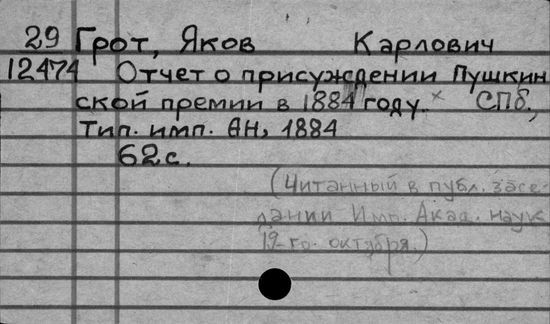 29 Грот, Яков Карлович
12474 Отчет о присуждении Пушкин
ской премии в 1884 году. × СПб.,
Тип. имп. АН, 1884
62 с.
(Читанный в публ. засе
дании Имп. Акад. наук
19-го. октября.)